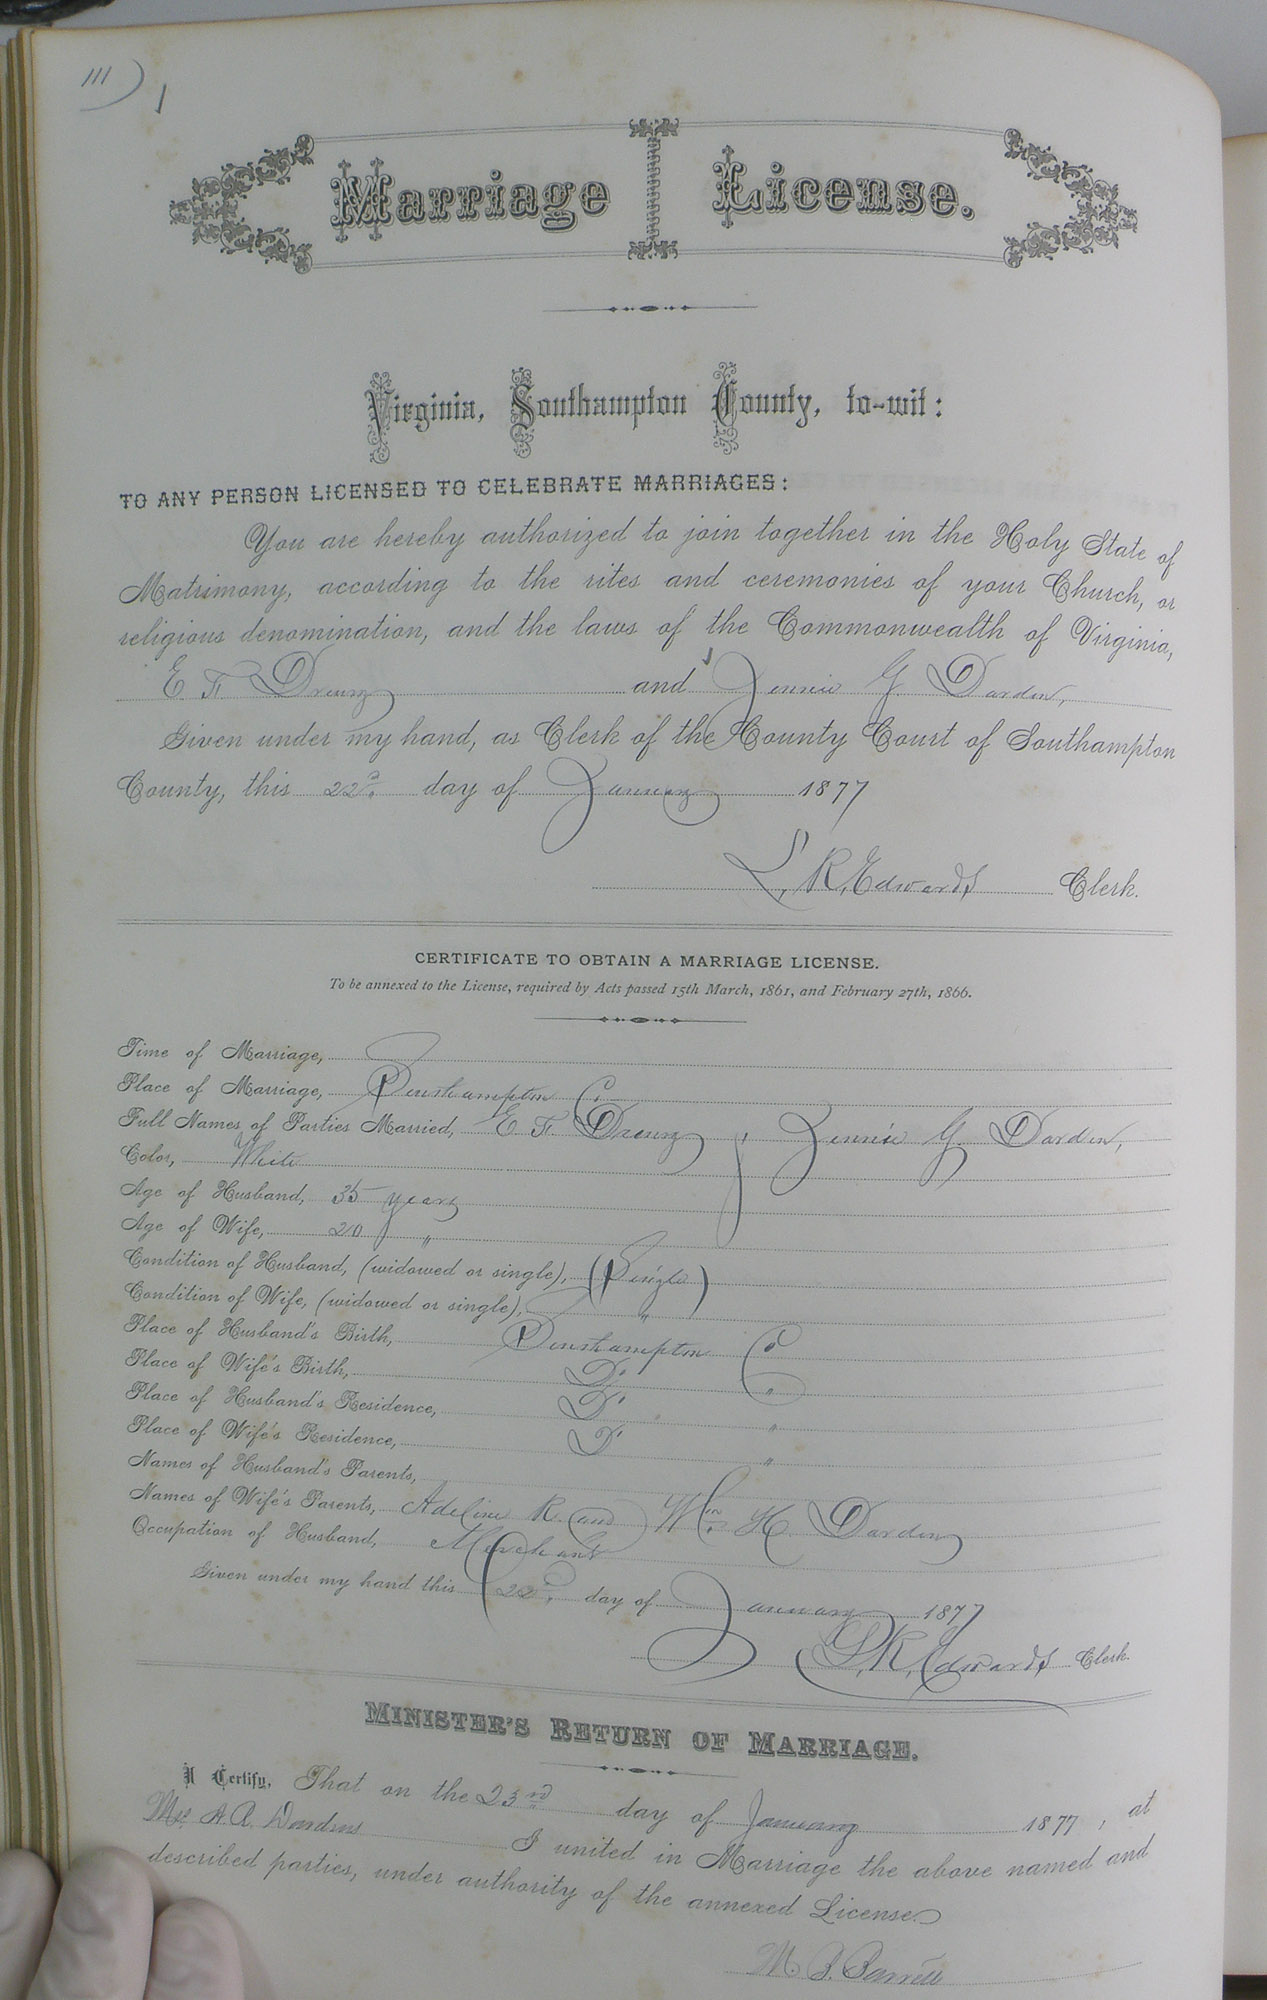 111
Marriage License.
Virginia, Southampton County, to-wit:
TO ANY PERSON LICENSED TO CELEBRATE MARRIAGES:
You are hereby authorized to join together in the Holy State of
Matrimony, according to the rites and ceremonies of your Church, or
religious denomination, and the laws of the Commonwealth of Virginia,
E. F. Drewry and Jennie G. Darden,
Given under my hand, as Clerk of the County Court of Southampton
County, this 22d. day of January 1877
L. R. Edwards Clerk.
CERTIFICATE TO OBTAIN A MARRIAGE LICENSE.
To be annexed to the License, required by Acts passed 15th March, 1861, and February 27th, 1866.
Time of Marriage,
Place of Marriage, Southampton C.
Full Names of Parties Married, E. F. Drewry, Jennie G. Darden,
Color, White
Age of Husband, 35 years
Age of Wife, 20 "
Condition of Husband, (widowed or single), (Single)
Condition of Wife, (widowed or single), "
Place of Husband's Birth, Southampton Co
Place of Wife's Birth, Do "
Place of Husband's Residence, Do "
Place of Wife's Residence, Do "
Names of Husband's Parents,
Names of Wife's Parents, Adeline R. and Wm. H. Darden
Occupation of Husband, Merchant
Given under my hand this 22d. day of January 1877
L. R. Edwards Clerk.
MINISTER'S RETURN OF MARRIAGE.
I Certify, That on the 23rd day of January 1877, at
Mrs A. R. Dardens I united in Marriage the above named and
described parties, under authority of the annexed License.
M. B. Barrett